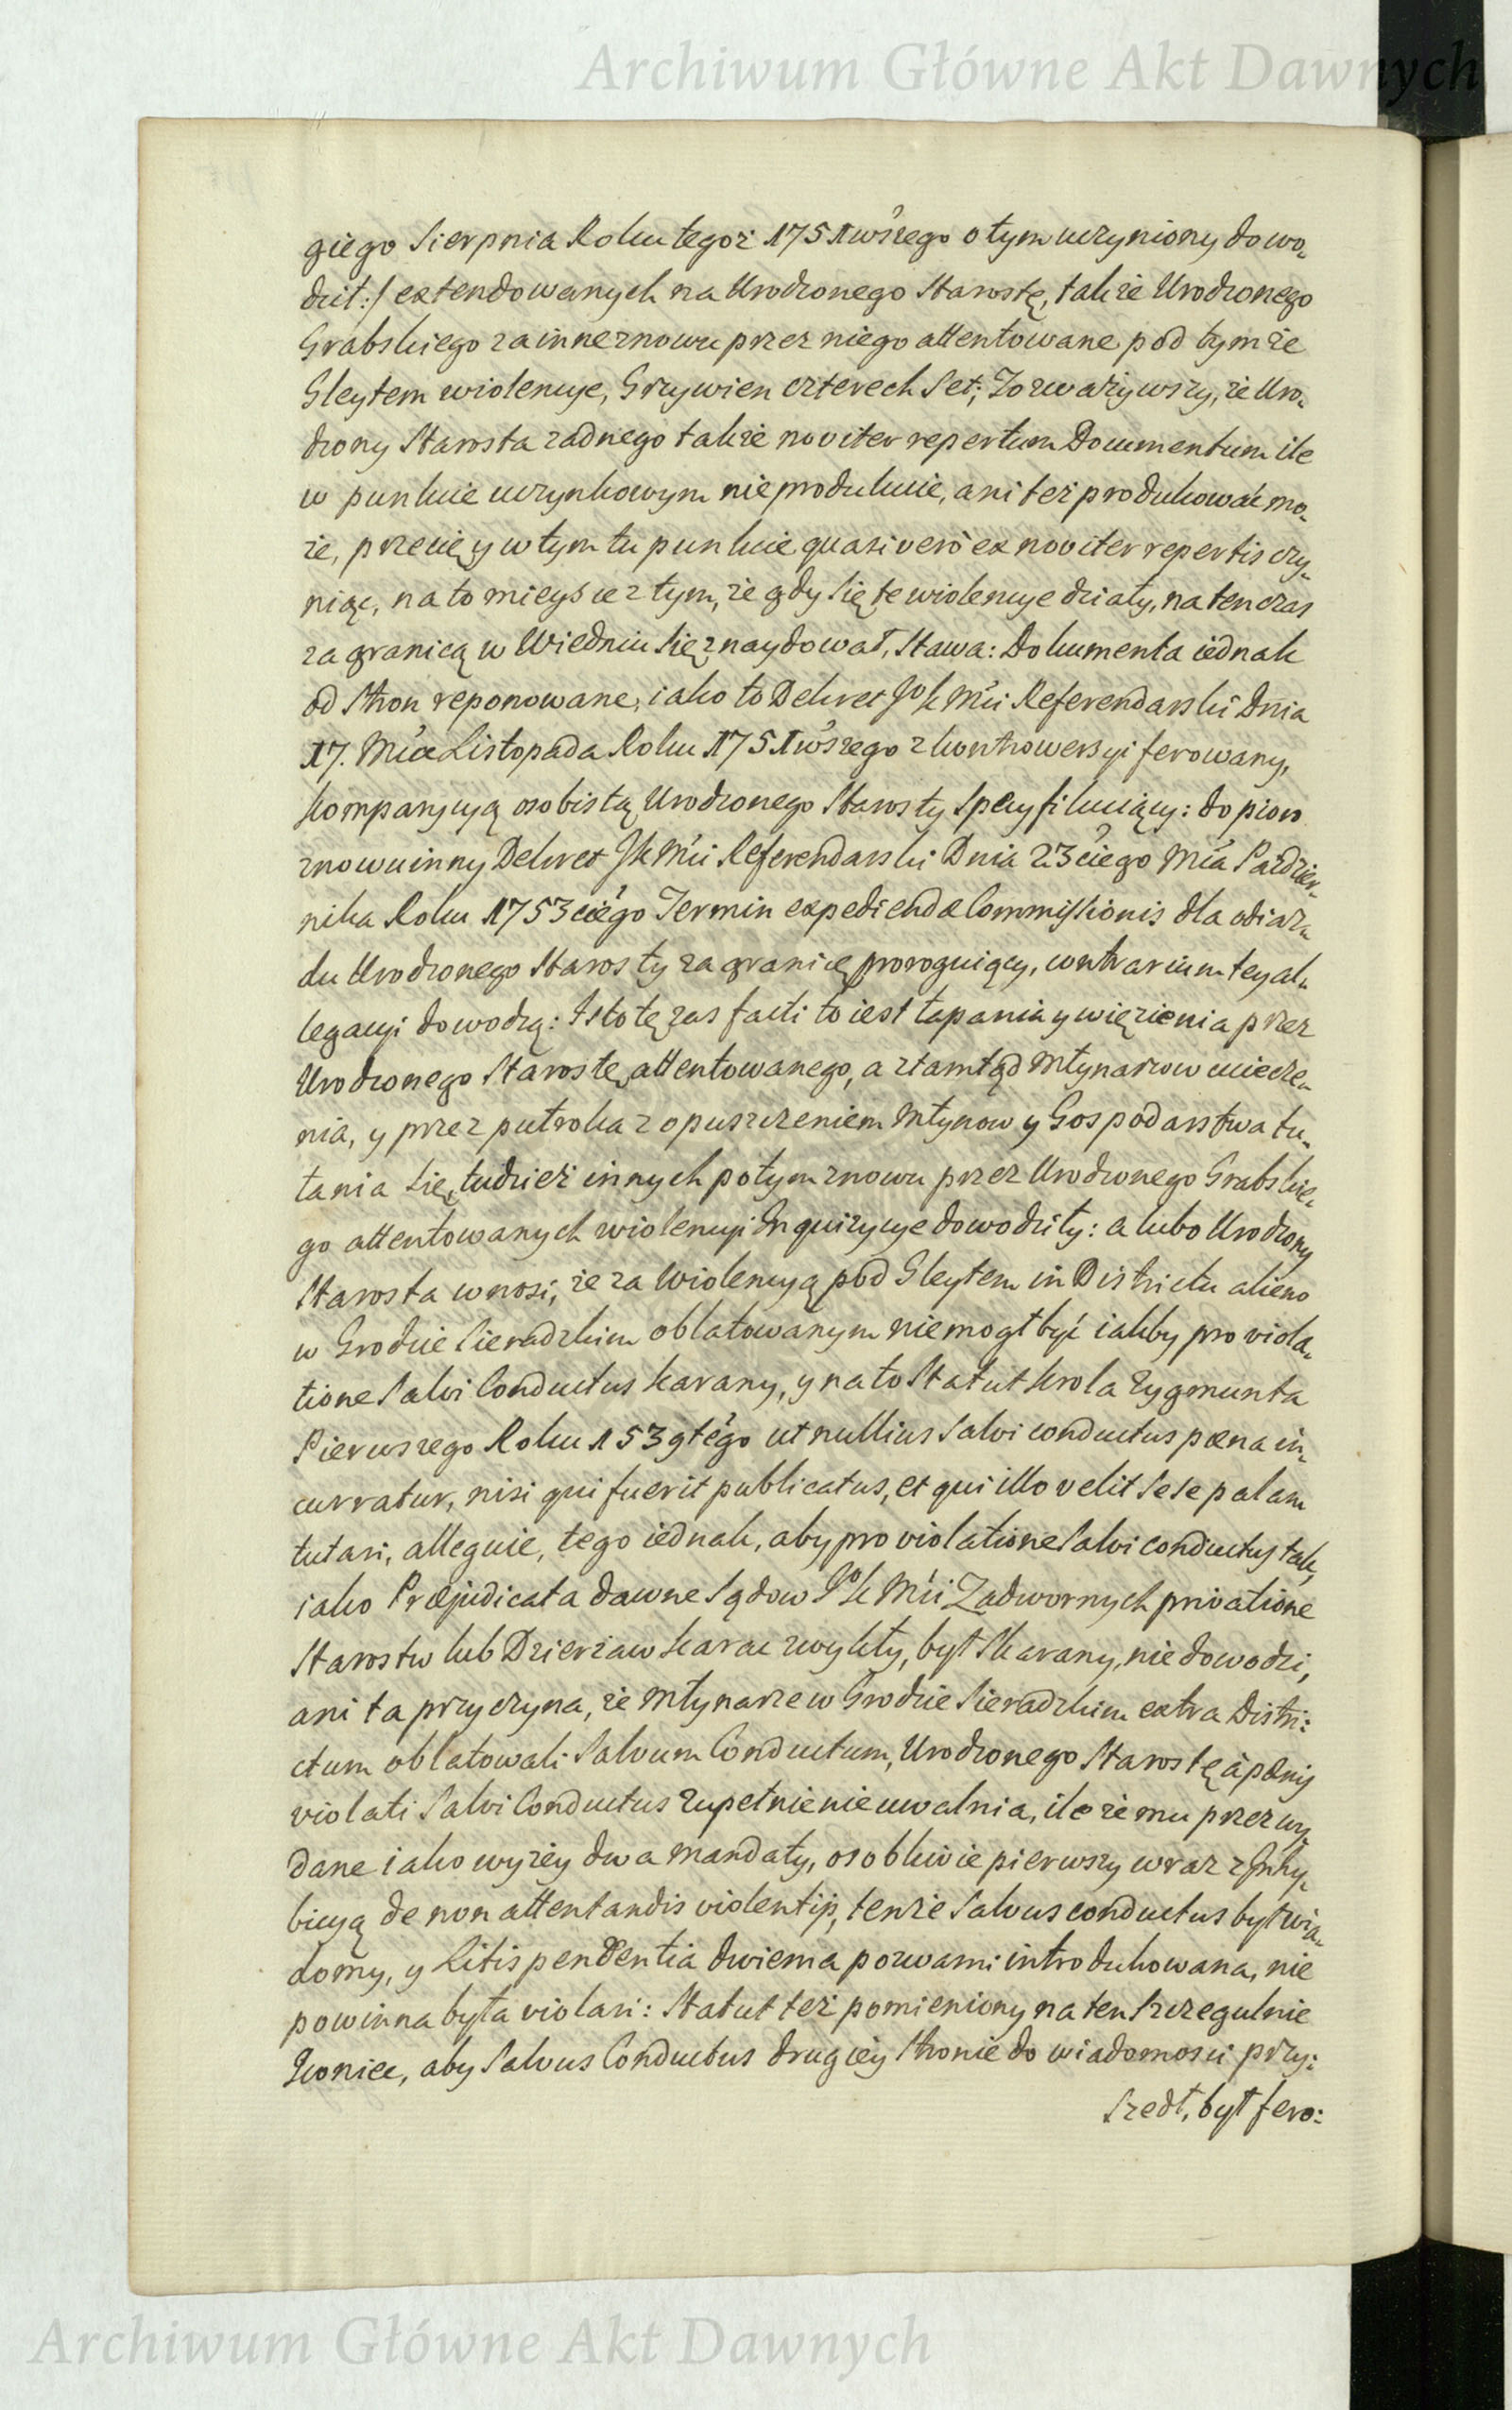 Archiwum Główne Akt Dawnych
giego Sierpnia Roku tegoż 1751wszego o tym uczyniony dowo-
dził:/ extendowanych na Urodzonego Starostę, także Urodzonego
Grabskiego za inne znowu przez niego attentowane pod tymże
Gleytem wiolencye, Grzywien czterech Set; Zozważywszy, że Uro-
dzony Starosta zadnego także noviter repertum Documentum ile
w punkcie uczynkowym nie produkuie, ani też produkować mo-
że, przecię y w tym tu punkcie quasi verò ex noviter repertis czy-
niąc, na to mieysce z tym, że gdy się te wiolencye działy, na ten czas
za granicą w Wiedniu się znaydował, stawa: Dokumenta iednak
od stron reponowane, iako to Dekret JoK Mci Referendarski Dnia
17. Mca Listopada Roku 1751wszego z kontrowersyi ferowany,
komparycyą osobistą Urodzonego Starosty specyfikuiący: do piero
znowu inny Dekret JK Mci Referendarski Dnia 23ciego Mca Pazdzier-
nika Roku 1753ciego Termin expediendæ Commissionis dla odiaz-
du Urodzonego Starosty za granicę proroguiący, contrarium tey al-
legacyi dowodzą: Istotę zas facti to iest łapania y więzienia przez
Urodzonego Starostę attentowanego, a ztamtąd Młynarzow uciecze-
nia, y przez putroka z opuszczeniem Młynow y Gospodarstwa tu-
łania się, tudzież innych potym znowu przez Urodzonego Grabskie-
go attentowanych wiolencyi Inquizycye dowodziły: a lubo Urodzony
Starosta wnosi, że za Wiolencyą pod Gleytem in Districtu alieno
w Grodzie Sieradzkim oblatowanym nie mogł być iakby pro viola-
tione Salvi Conductus karany, y na to Statut Krola Zygmunta
Pierwszego Roku 1539tego ut nullius Salvi conductus pœna in-
curratur, nisi qui fuerit publicatus, et qui illo velit sese palam
tutari, alleguie, tego iednak, aby pro violatione Salvi conductus tak,
iako Præjudicata dawne Sądow JoK Mci Zadwornych privatione
Starostw lub Dzierzaw karac zwykły, był skarany, nie dowodzi,
ani ta przyczyna, że Młynarze w Grodzie Sieradzkim extra Distri:
ctum oblatowali Salvum Conductum, Urodzonego Starostę à pœnis
violati Salvi Conductus zupełnie nie uwalnia, ile że mu przez wy-
dane iako wyżey dwa Mandaty, osobliwie pierwszy wraz z Inhy-
bicyą de non attentandis violentijs, tenże Salvus conductus był wia-
domy, y Litispendentia dwiema pozwami introdukowana, nie
powinna była violari: Statut też pomieniony na ten szczegulnie
koniec, aby Salvus Conductus drugiey stronie do wiadomosci przy:
szedł, był fero:
Archiwum Główne Akt Dawnych